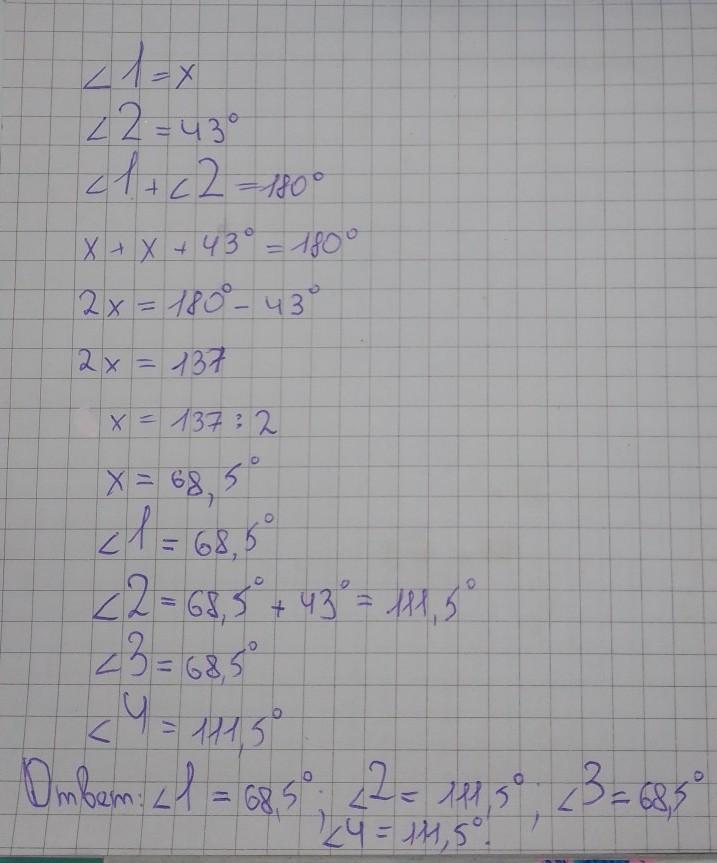 ∠1 = x
∠2 = 43°
∠1 + ∠2 = 180°
x + x + 43° = 180°
2x = 180° - 43°
2x = 137
x = 137 : 2
x = 68,5°
∠1 = 68,5°
∠2 = 68,5° + 43° = 111,5°
∠3 = 68,5°
∠4 = 111,5°
Ответ: ∠1 = 68,5°; ∠2 = 111,5°; ∠3 = 68,5°
∠4 = 111,5°.